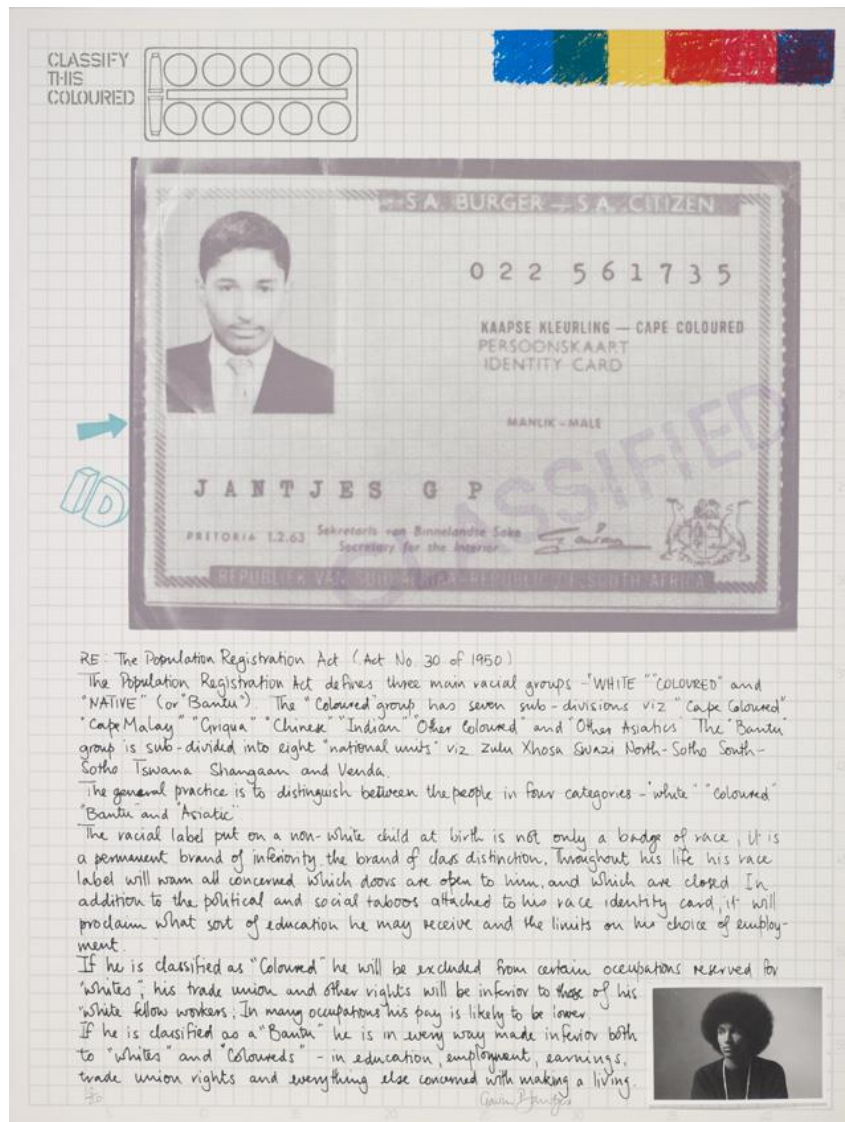 CLASSIFY
THIS
COLOURED
S.A. BURGER — S.A. CITIZEN
022 561735
KAAPSE KLEURLING — CAPE COLOURED
PERSOONSKAART
IDENTITY CARD
MANLIK - MALE
CLASSIFIED
ID
JANTJES G P
PRETORIA 1.2.63 Sekretaris van Binnelandse Sake
Secretary for the Interior
REPUBLIEK VAN SUID-AFRIKA - REPUBLIC OF SOUTH AFRICA
RE: The Population Registration Act (Act No. 30 of 1950)
The Population Registration Act defines three main racial groups - "WHITE" "COLOURED" and
"NATIVE" (or "Bantu"). The "Coloured" group has seven sub-divisions viz "Cape Coloured"
"Cape Malay" "Griqua" "Chinese" "Indian" "Other Coloured" and "Other Asiatics" The "Bantu"
group is sub-divided into eight "national units" viz Zulu Xhosa Swazi North-Sotho South-
Sotho Tswana Shangaan and Venda.
The general practice is to distinguish between the people in four categories - "white" "coloured"
"Bantu" and "Asiatic"
The racial label put on a non-white child at birth is not only a badge of race, it is
a permanent brand of inferiority, the brand of class distinction. Throughout his life his race
label will warn all concerned which doors are open to him, and which are closed In
addition to the political and social taboos attached to his race identity card, it will
proclaim what sort of education he may receive and the limits on his choice of employ-
ment.
If he is classified as "Coloured" he will be excluded from certain occupations reserved for
"whites", his trade union and other rights will be inferior to those of his
"white fellow workers; In many occupations his pay is likely to be lower.
If he is classified as a "Bantu" he is in every way made inferior both
to "whites" and "Coloureds" - in education, employment, earnings,
trade union rights and everything else concerned with making a living.
Gavin Jantjes